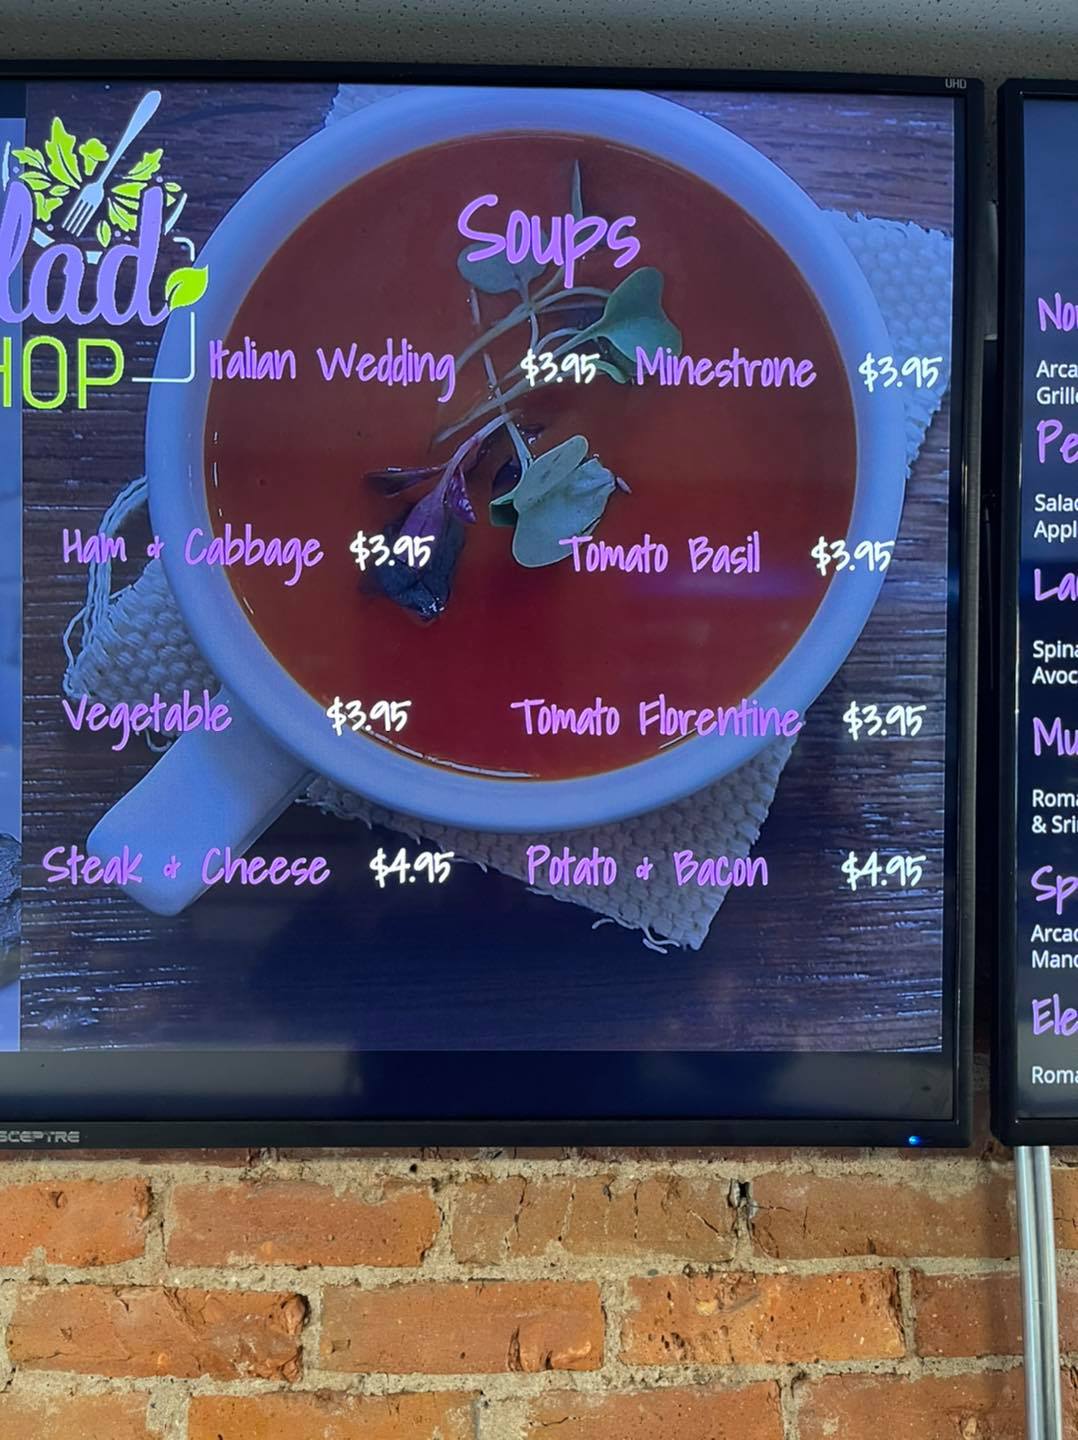 UHD
lad
HOP
Soups
Italian Wedding $3.95 Minestrone $3.95
Ham & Cabbage $3.95 Tomato Basil $3.95
Vegetable $3.95 Tomato Florentine $3.95
Steak & Cheese $4.95 Potato & Bacon $4.95
SCEPTRE
No
Arca
Grille
Pe
Salad
Appl
La
Spina
Avoc
Mu
Roma
& Sri
Sp
Arcad
Mand
Ele
Roma